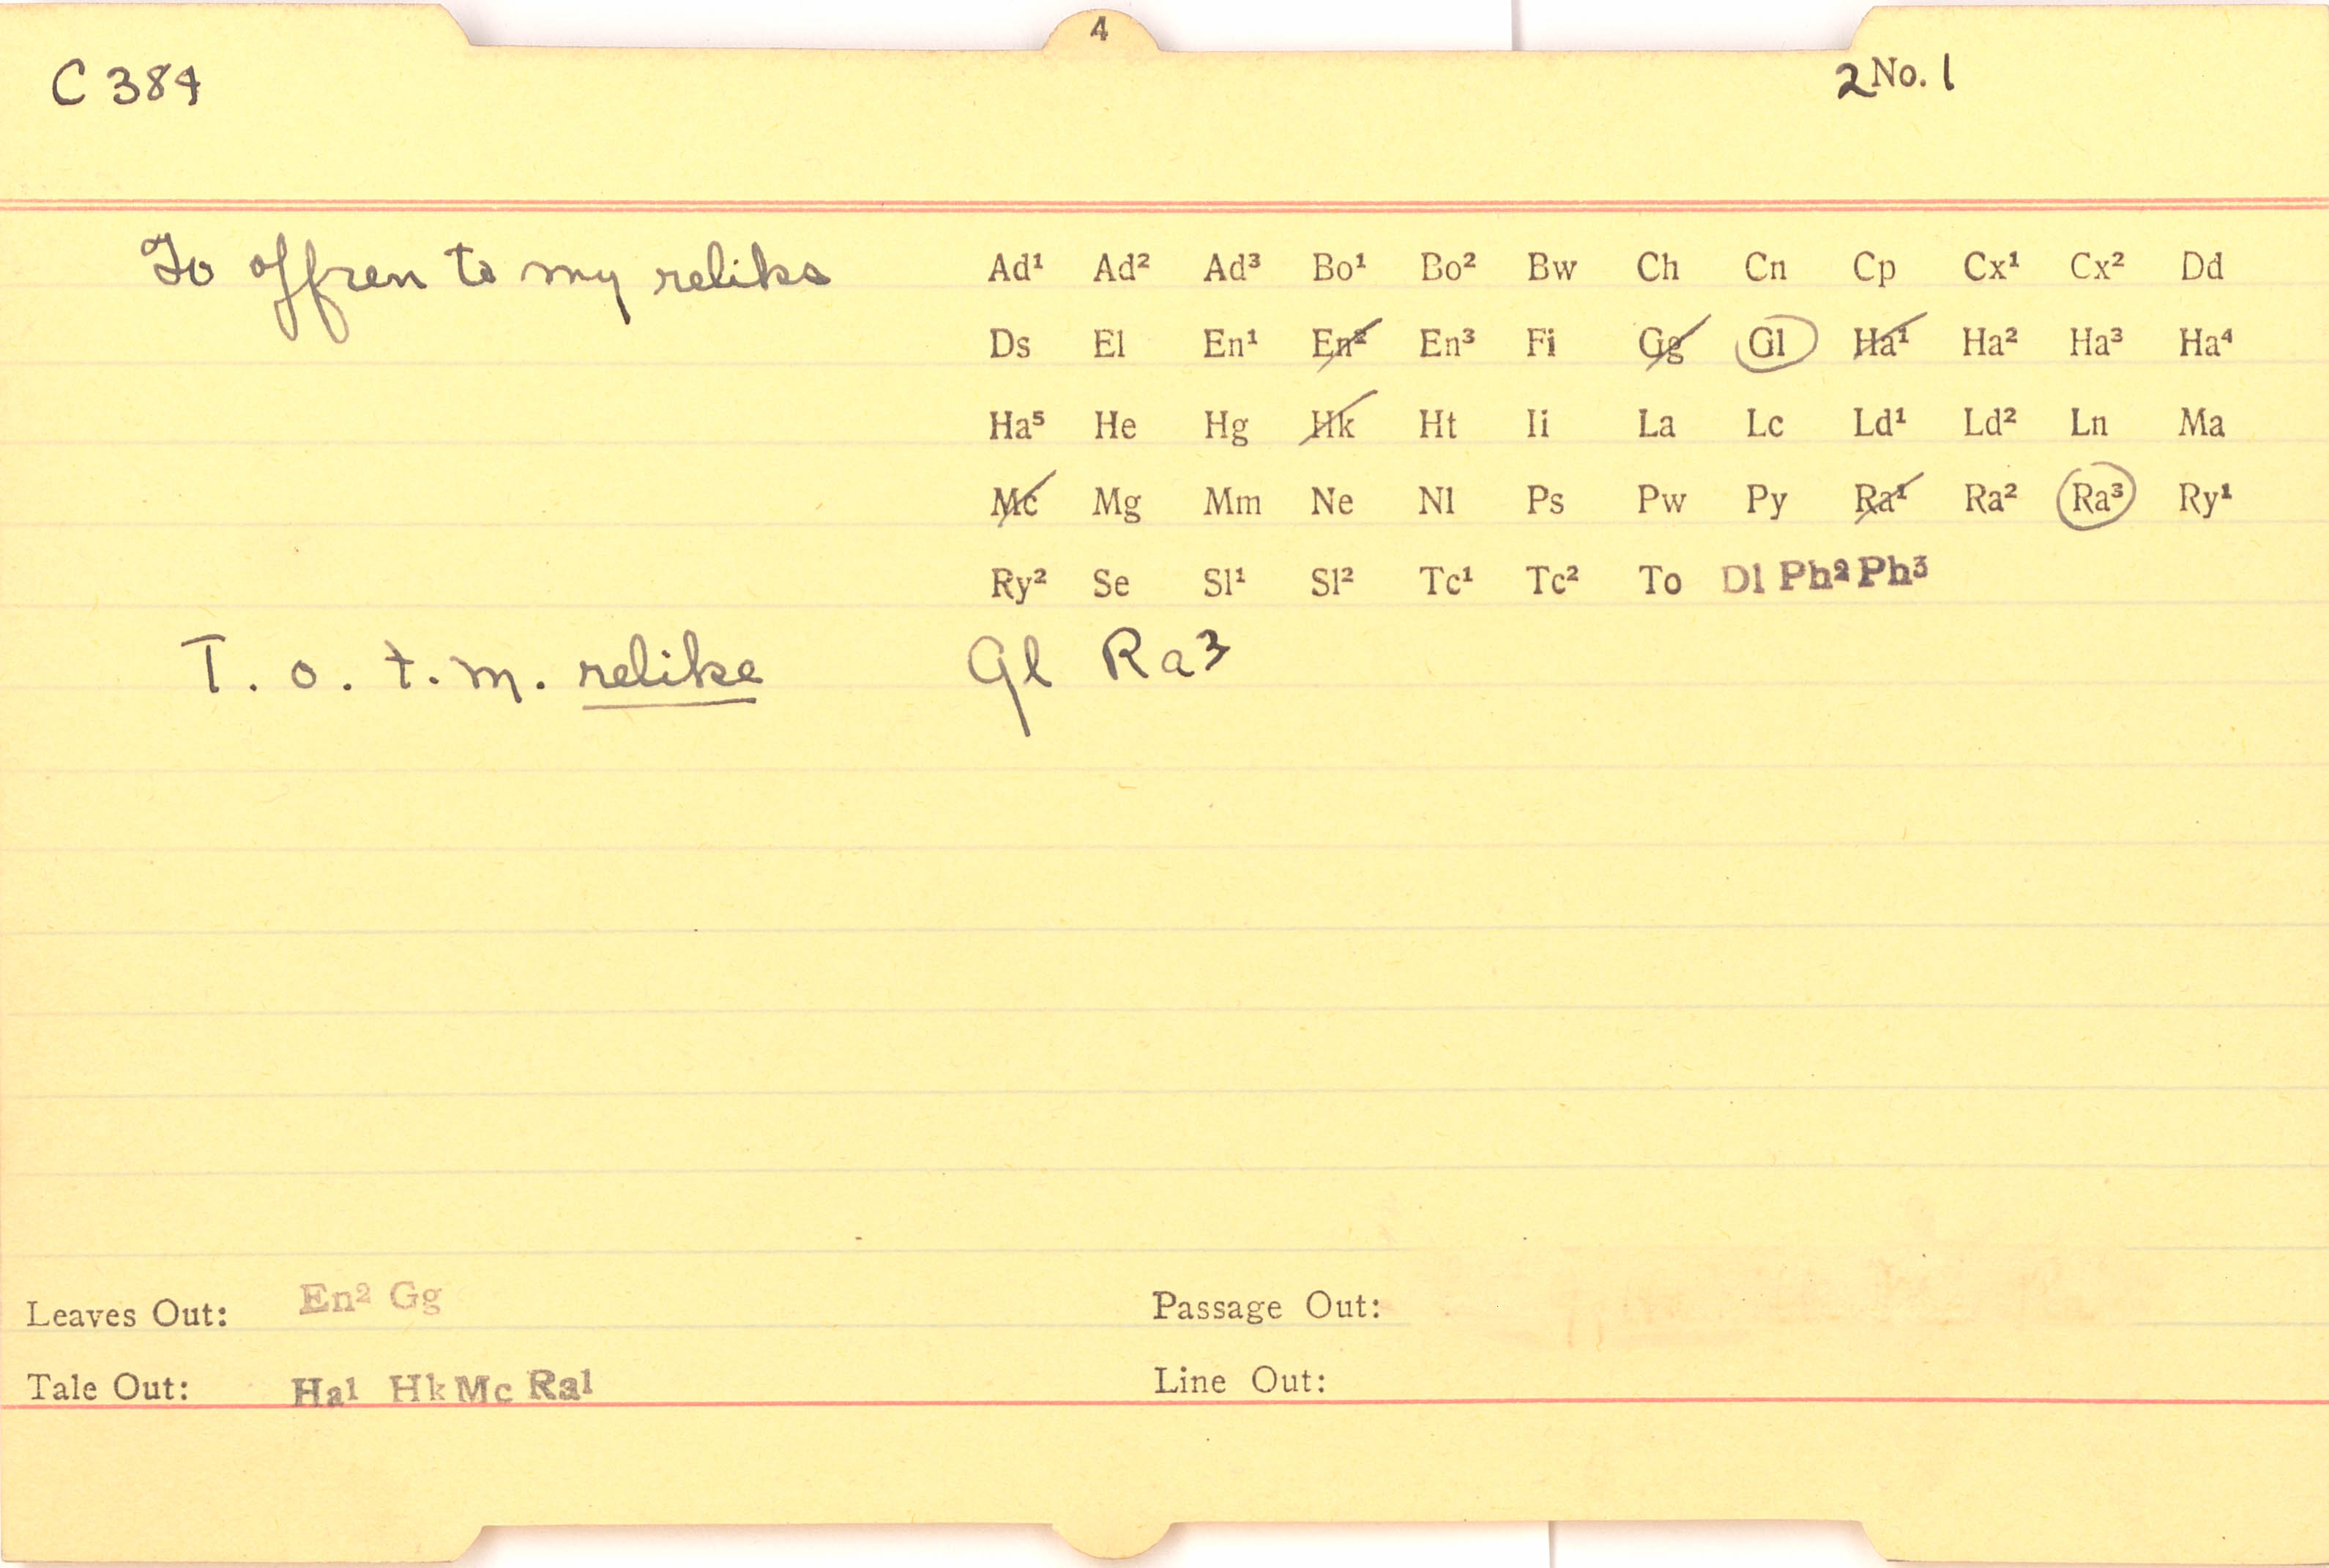 4
C 384 2 No. 1
To offren to my reliks Ad¹ Ad² Ad³ Bo¹ Bo² Bw Ch Cn Cp Cx¹ Cx² Dd
Ds El En¹ En² En³ Fi Gg Gl Ha¹ Ha² Ha³ Ha⁴
Ha⁵ He Hg Hk Ht Ii La Lc Ld¹ Ld² Ln Ma
Mc Mg Mm Ne Nl Ps Pw Py Ra¹ Ra² Ra³ Ry¹
Ry² Se Sl¹ Sl² Tc¹ Tc² To Dl Ph² Ph³
T. o. t. m. relike Gl Ra³
Leaves Out: En² Gg Passage Out:
Tale Out: Ha1 Hk Mc Ra1 Line Out: